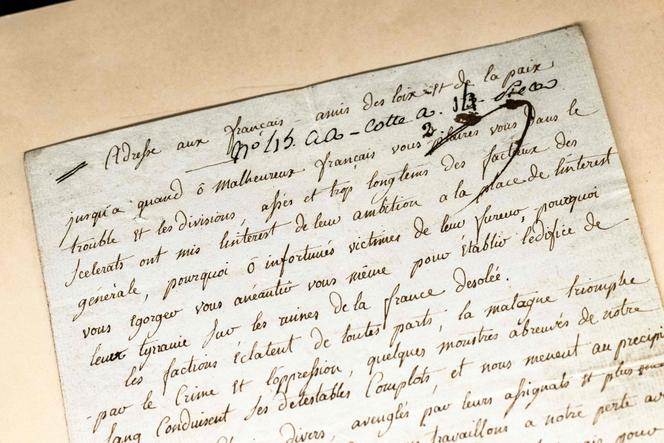 Adresse aux français amis des loix et de la paix
N° 15. aa - Cotte a. 2
jusqu'a quand ô malheureux français vous plairez vous dans le
trouble et les divisions, assés et trop longtems des factieux des
scelerats ont mis linterest de leur ambition a la place de linterest
générale, pourquoi ô infortunés victimes de leur fureur, pourquoi
vous egorger vous anéantir vous même pour établir lédifice de
leur tyranie sur les ruines de la france desolée.
les factions éclatent de toutes parts, la montagne triomphe
par le Crime et loppression, quelques monstres abreuvés de notre
sang Conduisent ses détestables Complots, et nous menent au précip
divers, avenglés par leurs assignats et plus
travaillons a notre perte av
pour